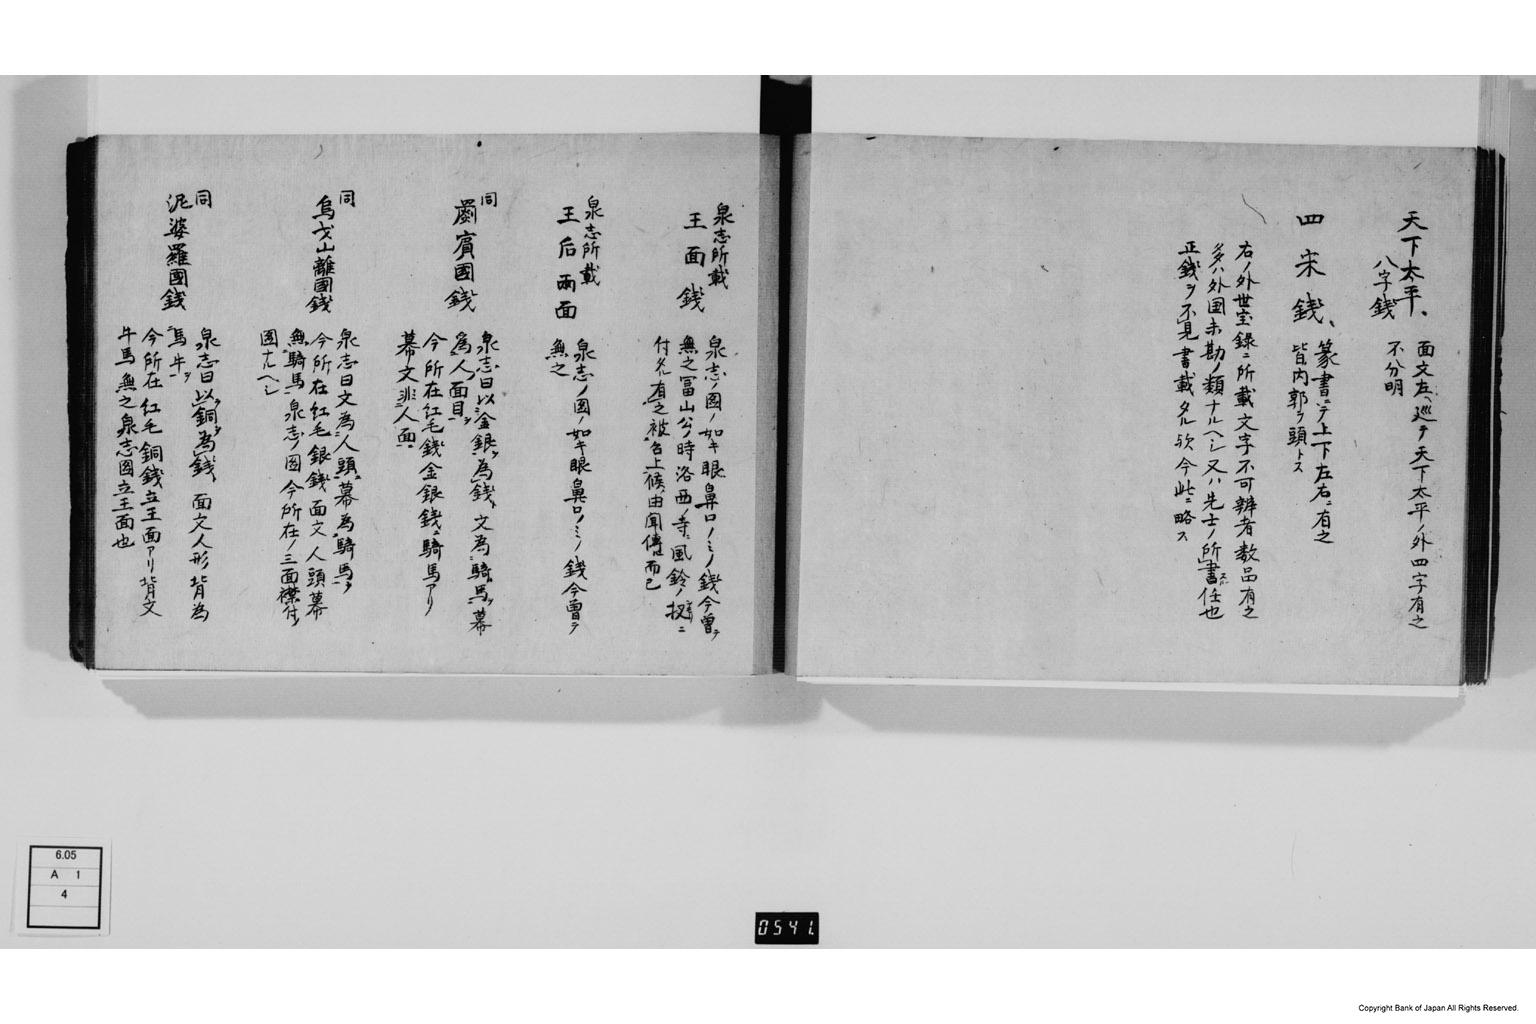 天下太平、
八字錢
面文左ヘ巡テ天下太平ノ外四字有之
不分明
四宋錢、
篆書ニテ上下左右ニ有之
皆内郭ヲ頭トス
右ノ外世宝録ニ所載文字不可辨者数品有之
多ハ外国未勘ノ類ナルヘシ又ハ先士ノ所書任也
正錢ヲ不見書載タル欤今此ニ略ス
泉志所載
王面錢
泉志ノ圖ノ如キ眼鼻口ノミノ錢今曽テ
無之冨山公ノ時洛西ノ寺ニ風鈴ノ
付タル有之被召上候由聞傳而已
泉志所載
王后兩面
泉志ノ圖ノ如キ眼鼻口ノミノ錢今曽テ
無之
同
罽賓國錢
泉志曰以金銀為錢文為騎馬幕
為人面目
今所在紅毛錢金銀錢ニ騎馬アリ
幕文非人面
同
烏弋山離國錢
泉志曰文為人頭幕為騎馬
今所在紅毛銀錢面文人頭幕
無騎馬泉志ノ圖今所在ノ三面襟付ノ
圖ナルヘシ
同
泥婆羅國錢
泉志曰以銅為錢面文人形背為
馬牛
今所在紅毛銅錢立王面アリ背文
牛馬無之泉志圖立王面也
6.05
A 1
4
0541
Copyright Bank of Japan All Rights Reserved.